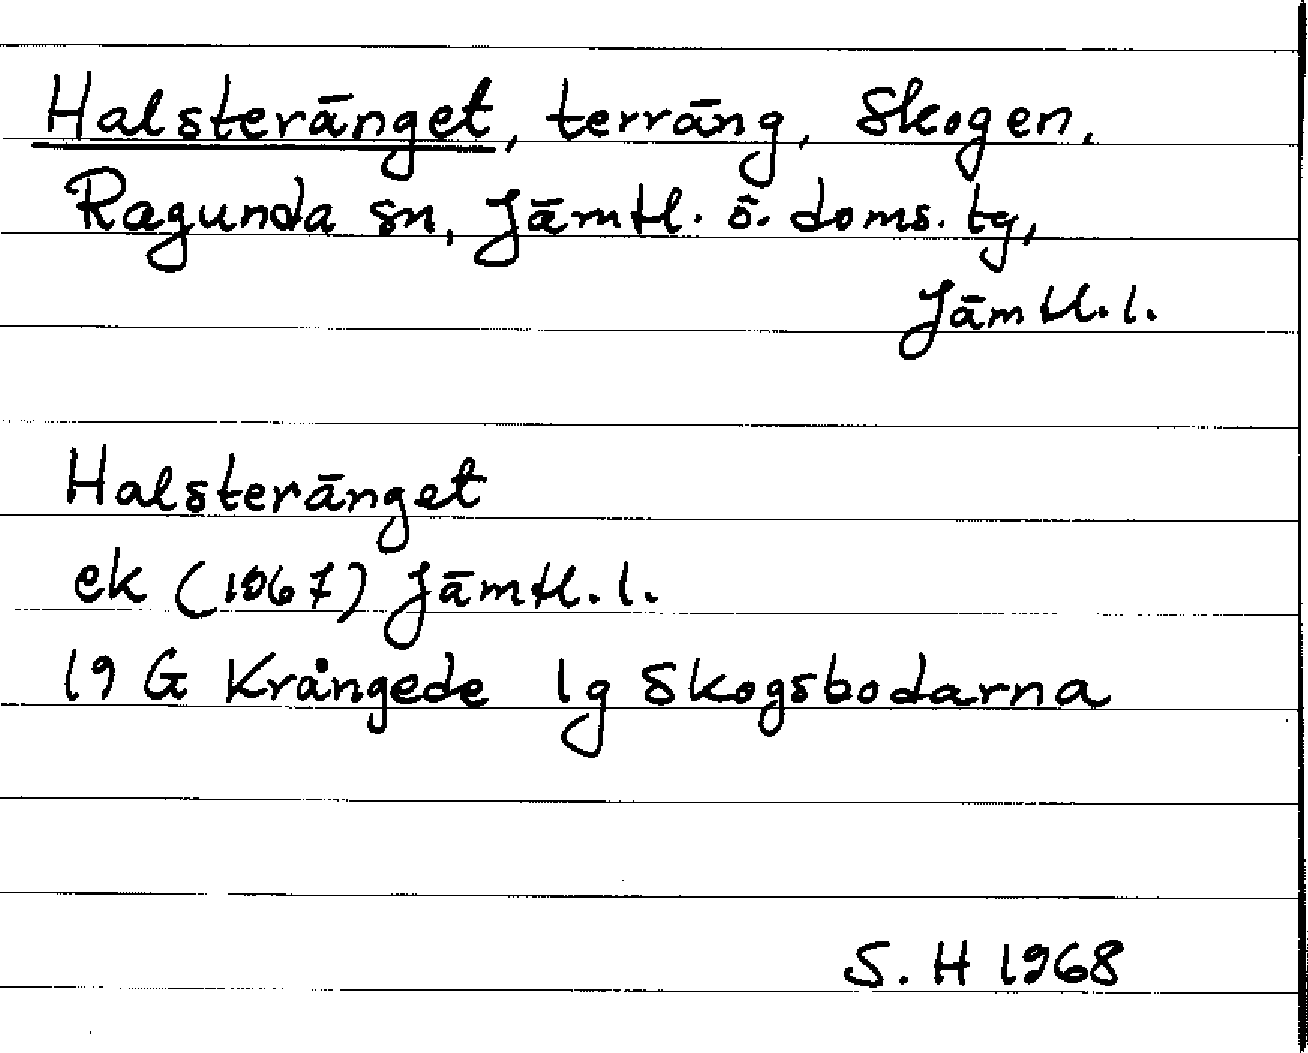 Halsteränget, terräng, Skogen,
Ragunda sn, Jämtl. ö. doms. tg,
Jämtl. l.
Halsteränget
ek (1967) Jämtl. l.
19 G Krångede lg Skogsbodarna
S. H 1968